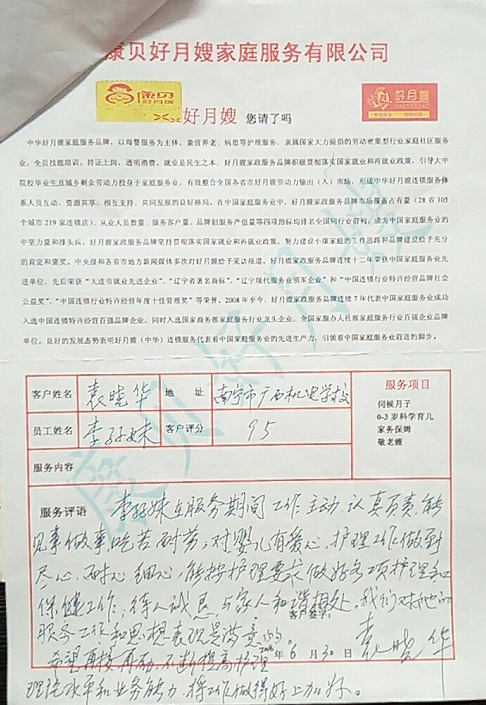 康贝好月嫂家庭服务有限公司
康贝
好月嫂
好月嫂
HAOYUESAO
好月嫂 您请了吗
中华好月嫂家庭服务品牌，以母婴服务为主体，兼营养老、病患等护理服务，隶属国家大力提倡的劳动密集型行业家庭社区服务
业，全员技能培训，持证上岗，透明消费。就业是民生之本，好月嫂家政服务品牌积极贯彻落实国家就业和再就业政策，引导大中
院校毕业生及城乡剩余劳动力投身于家庭服务业，有效整合全国各省市好月嫂劳动力输出（入）市场，形成中华好月嫂连锁服务体
系人员互动、资源共享、相互支持、共同发展的良好格局。在中国家庭服务业中，好月嫂家政服务品牌市场覆盖占有量（28省105
个城市219家连锁店）、从业人员数量、服务客户量、品牌创服务产值量等四项指标均排名全国同行业前列，成为中国家庭服务业的
中坚力量和排头兵。好月嫂家政服务品牌坚持贯彻落实国家就业和再就业政策，努力建设小康家庭的工作思路和品牌建设给予充分
的肯定和褒奖。中央级和各省市地方新闻媒体多次对好月嫂给予采访报道。好月嫂家政服务品牌连续十二年荣获中国家庭服务业先
进单位，先后荣获“大连市就业先进企业”、“辽宁省著名商标”、《辽宁现代服务业领军企业”和“中国连锁行业特许经营品牌社会
公益奖”、“中国连锁行业特许经营年度十佳管理奖”等荣誉。2008年至今，好月嫂家政服务品牌连续7年代表中国家庭服务业成功
入选中国连锁特许经营百强品牌企业，同时入选国家商务部家庭服务行业龙头企业、全国家服办人社部家庭服务行业百强企业品牌
单位。良好的发展态势表明好月嫂（中华）连锁服务代表着中国家庭服务业的先进生产力，引领着中国家庭服务业前进的脚步。
康贝好月嫂
客户姓名 袁晓华 地 址 南宁市广西机电学校
员工姓名 李好妹 客户评分 95
服务内容
服务项目
伺候月子
0-3岁科学育儿
家务保姆
敬老嫂
服务评语 李好妹在服务期间工作主动，认真负责，能
见事做事，吃苦耐劳，对婴儿有爱心，护理工作做到
尽心，耐心，细心，能按护理要求做好各项护理和
保健工作，待人诚恳，与家人和谐相处，我们对她的
服务工作和思想表现是满意的。
客户签字：
希望再接再励，不断提高护理
年6月30日 袁晓华
理论水平和业务能力，将工作做得好上加好。